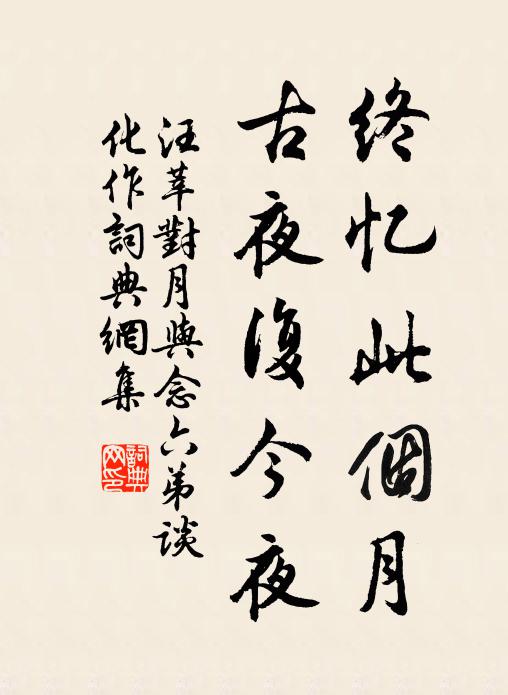 终忆此個月
古夜復今夜
汪莘對月與念六弟談
化作詞典網集
詞典
网印